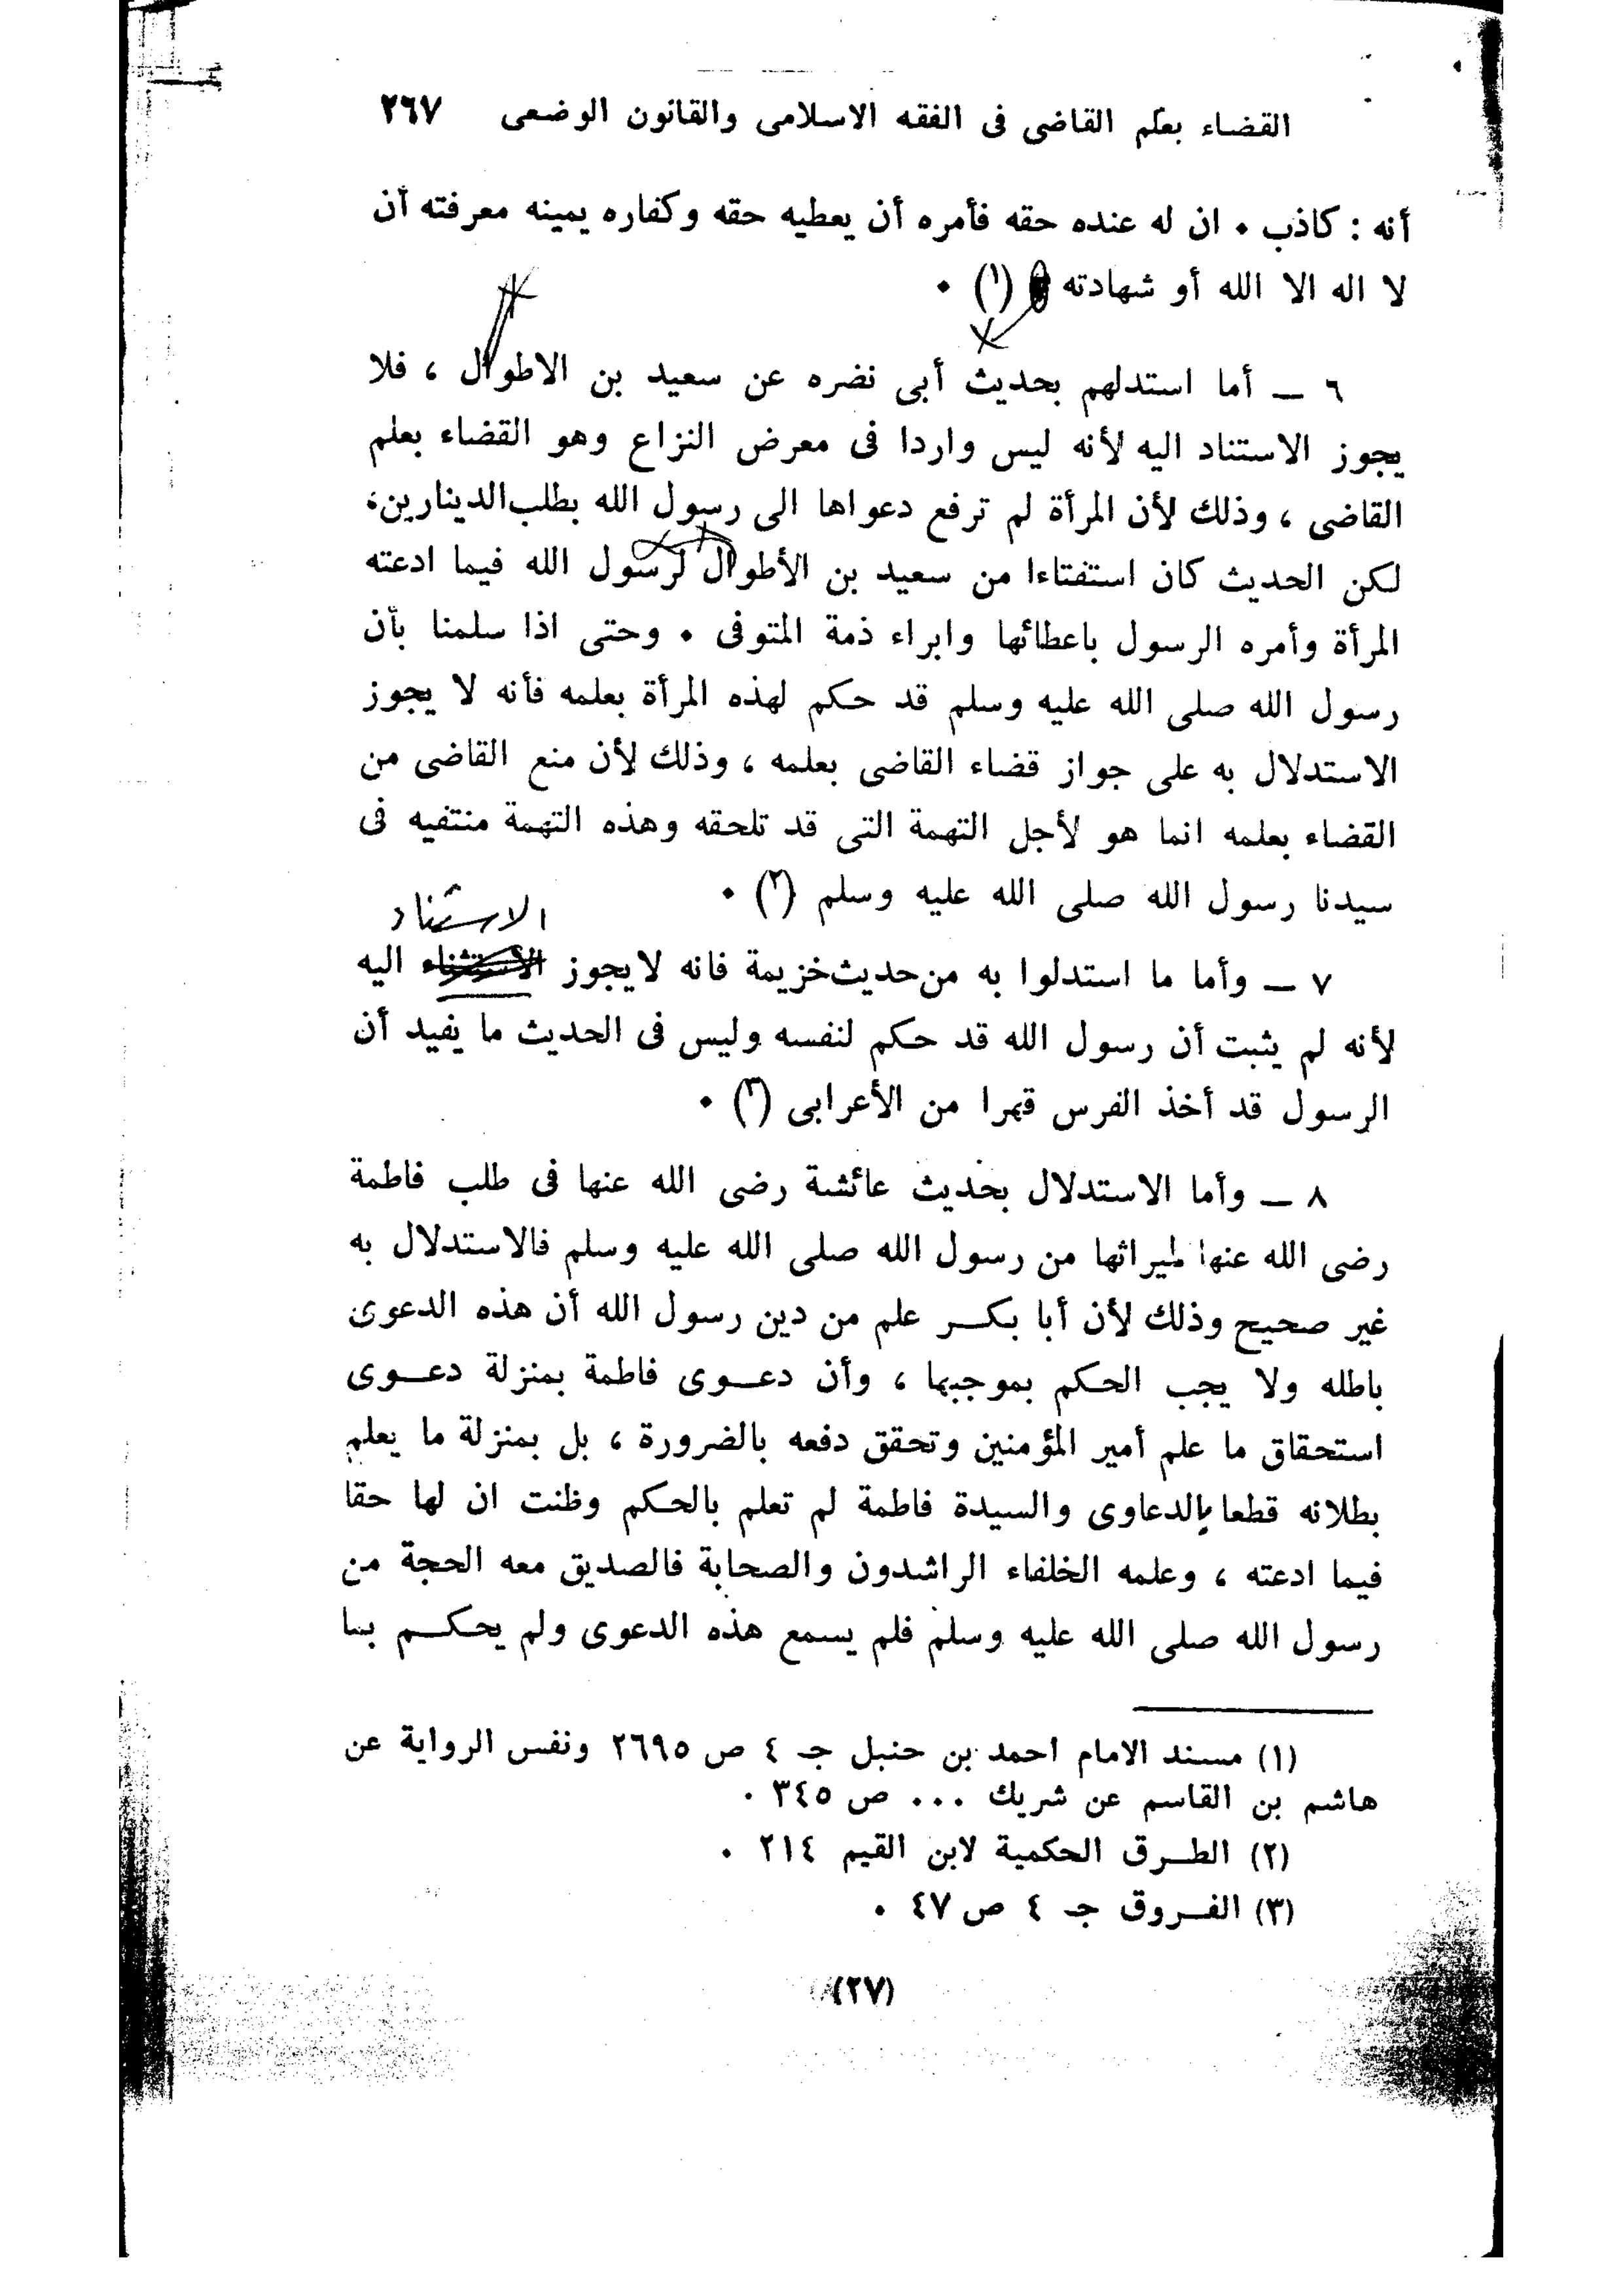 القضاء بعلم القاضى فى الفقه الاسلامى والقانون الوضعى ٢٦٧
أنه : كاذب . ان له عنده حقه فأمره أن يعطيه حقه وكفاره يمينه معرفته أن
لا اله الا الله أو شهادته (١) .
٦ — أما استدلهم بحديث أبى نضره عن سعيد بن الاطوال ، فلا
يجوز الاستناد اليه لأنه ليس واردا فى معرض النزاع وهو القضاء بعلم
القاضى ، وذلك لأن المرأة لم ترفع دعواها الى رسول الله بطلب الدينارين،
لكن الحديث كان استفتاءا من سعيد بن الأطوال لرسول الله فيما ادعته
المرأة وأمره الرسول باعطائها وابراء ذمة المتوفى . وحتى اذا سلمنا بأن
رسول الله صلى الله عليه وسلم قد حكم لهذه المرأة بعلمه فأنه لا يجوز
الاستدلال به على جواز قضاء القاضى بعلمه ، وذلك لأن منع القاضى من
القضاء بعلمه انما هو لأجل التهمة التى قد تلحقه وهذه التهمة منتفيه فى
سيدنا رسول الله صلى الله عليه وسلم (٢) .
الاستناد
٧ — وأما ما استدلوا به من حديث خزيمة فانه لا يجوز الاستثناء اليه
لأنه لم يثبت أن رسول الله قد حكم لنفسه وليس فى الحديث ما يفيد أن
الرسول قد أخذ الفرس قهرا من الأعرابى (٣) .
٨ — وأما الاستدلال بحديث عائشة رضى الله عنها فى طلب فاطمة
رضى الله عنها لميراثها من رسول الله صلى الله عليه وسلم فالاستدلال به
غير صحيح وذلك لأن أبا بكر علم من دين رسول الله أن هذه الدعوى
باطله ولا يجب الحكم بموجبها ، وأن دعوى فاطمة بمنزلة دعوى
استحقاق ما علم أمير المؤمنين وتحقق دفعه بالضرورة ، بل بمنزلة ما يعلم
بطلانه قطعا بالدعاوى والسيدة فاطمة لم تعلم بالحكم وظنت ان لها حقا
فيما ادعته ، وعلمه الخلفاء الراشدون والصحابة فالصديق معه الحجة من
رسول الله صلى الله عليه وسلم فلم يسمع هذه الدعوى ولم يحكم بما
(١) مسند الامام احمد بن حنبل جـ ٤ ص ٢٦٩٥ ونفس الرواية عن
هاشم بن القاسم عن شريك ... ص ٣٤٥ .
(٢) الطرق الحكمية لابن القيم ٢١٤ .
(٣) الفروق جـ ٤ ص ٤٧ .
(٢٧)